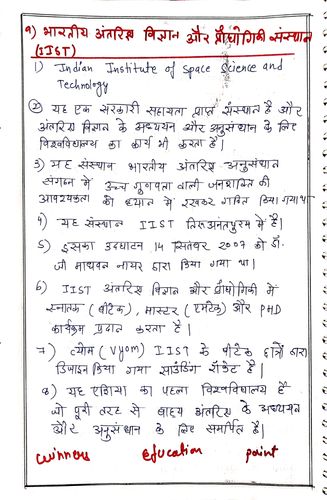 १) भारतीय अंतरिक्ष विज्ञान और प्रौद्योगिकी संस्थान
(IIST)
1) Indian Institute of Space Science and
Technology
② यह एक सरकारी सहायता प्राप्त संस्थान है और
अंतरिक्ष विज्ञान के अध्ययन और अनुसंधान के लिए
विश्वविद्यालय का कार्य भी करता है।
3) यह संस्थान भारतीय अंतरिक्ष अनुसंधान
संगठन में उच्च गुणवत्ता वाली जनशक्ति की
आवश्यकता को ध्यान में रखकर गठित किया गया था
४) यह संस्थान IIST तिरुअनंतपुरम में है।
5) इसका उद्घाटन 14 सितंबर 2007 को डॉ.
जी माधवन नायर द्वारा किया गया था।
6) IIST अंतरिक्ष विज्ञान और प्रौद्योगिकी में
स्नातक (बीटेक), मास्टर (एमटेक) और PHD
कार्यक्रम प्रदान करता है।
7) व्योम (Vyom) IIST के बीटेक छात्रों द्वारा
डिजाइन किया गया साउंडिंग रॉकेट है।
8) यह एशिया का पहला विश्वविद्यालय है
जो पूरी तरह से बाह्य अंतरिक्ष के अध्ययन
और अनुसंधान के लिए समर्पित है।
winners education point